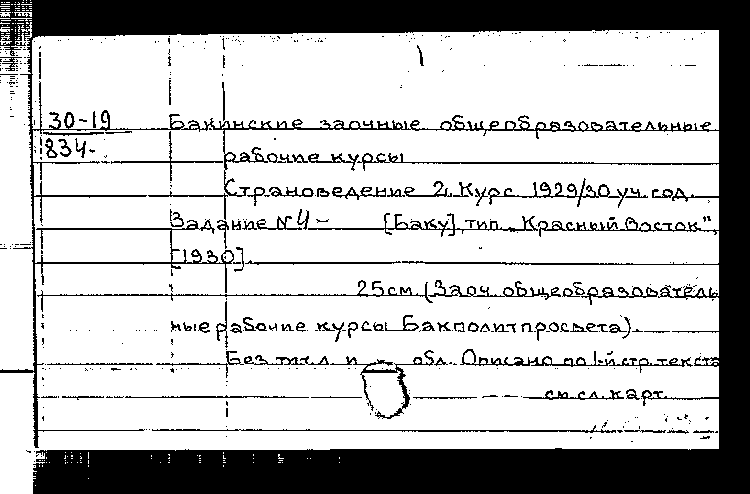 30-19
834-
Бакинские заочные общеобразовательные
рабочие курсы
Страноведение 2й Курс 1929/30 уч. год.
Задание №4 - [Баку], тип. "Красный Восток",
[1930].
25см. (Заоч. общеобразователь
ные рабочие курсы Бакполитпросвета).
Без тит. л. и обл. Описано по 1-й стр. текста
см. сл. карт.